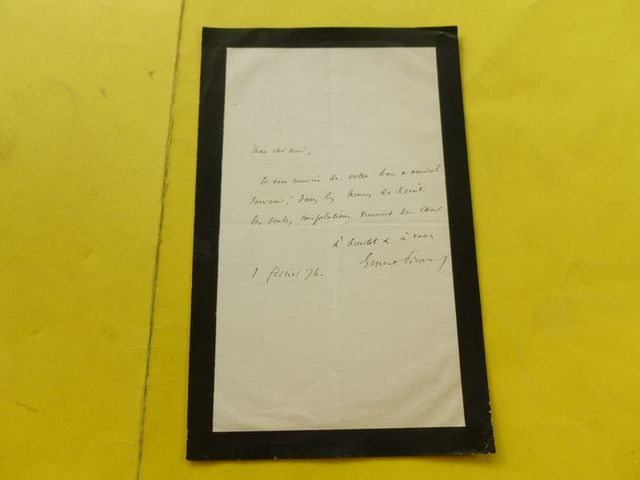 Mon cher ami,
Je vous remercie de votre bon & amical
souvenir; dans les heures de deuil
les seules consolations viennent du cœur
à bientôt & à vous
Ernest Picard
1 février 76.